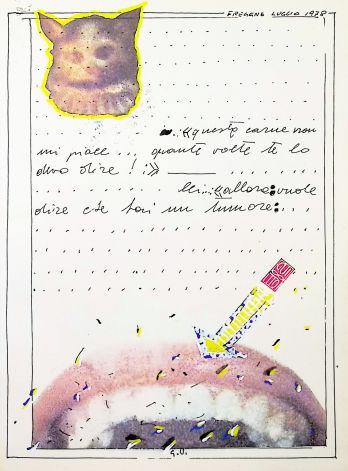 FREGENE LUGLIO 1978
..: «questa carne non
mi piace ..., quante volte te lo
devo dire! :»
lei.. «allora: vuole
dire che hai un tumore:...
G.U.